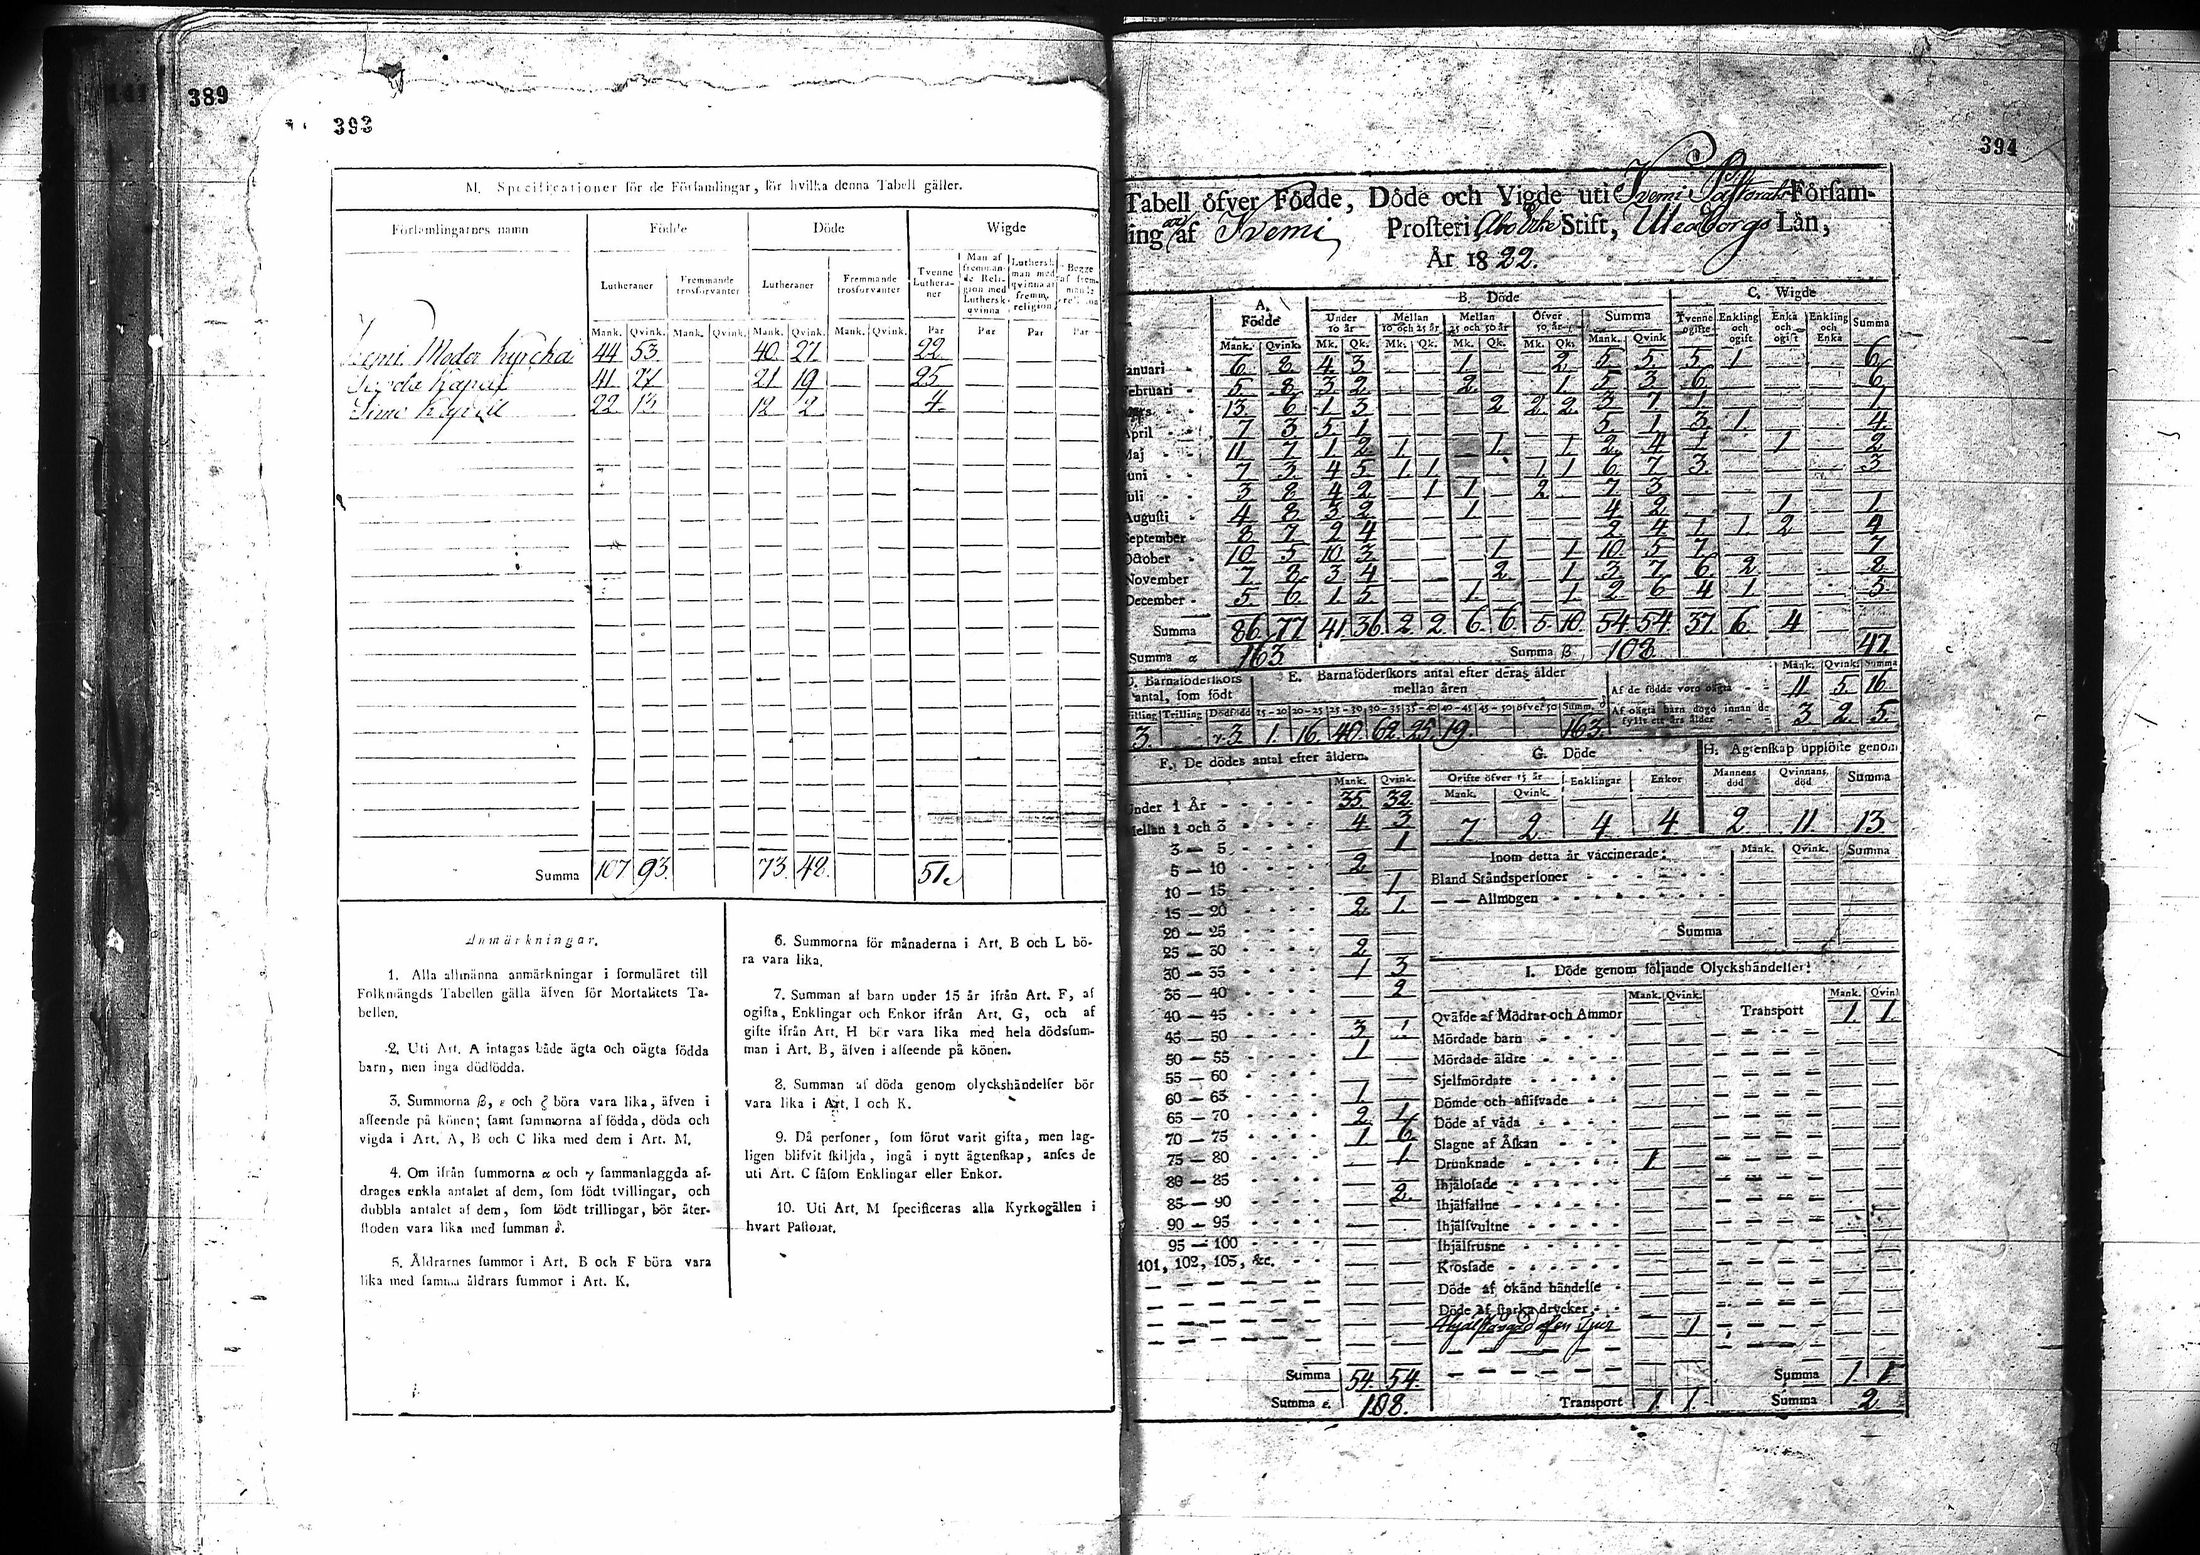 389
393
M. Specificationer för de Församlingar, för hvilka denna Tabell gäller.
Församlingarnes namn Födde Döde Wigde
Lutheraner Fremmande trosförvanter Lutheraner Fremmande trosförvanter Tvenne Lutheraner Man af fremmande Religion med Luthersk qvinna Luthersk man med qvinna af fremm. religion Begge af fremmande religion
Mank. Qvink. Mank. Qvink. Mank. Qvink. Mank. Qvink. Par Par Par Par
Kemi Moder kyrcka 44 53 40 27 22
Kapell 41 27 21 19 25
Simo Kapell 22 13 12 2 4
Summa 107 93 73 48 51
Anmärkningar.
1. Alla allmänna anmärkningar i formuläret till
Folkmängds Tabellen gälla äfven för Mortalitets Ta-
bellen.
2. Uti Art. A intagas både ägta och oägta födda
barn, men inga dödfödda.
3. Summorna β, ε och ζ böra vara lika, äfven i
afseende på könen; samt summorna af födda, döda och
vigda i Art. A, B och C lika med dem i Art. M.
4. Om ifrån summorna α och γ sammanlaggda af-
drages enkla antalet af dem, som födt tvillingar, och
dubbla antalet af dem, som födt trillingar, bör åter-
stoden vara lika med summan δ.
5. Åldrarnes summor i Art. B och F böra vara
lika med samma åldrars summor i Art. K.
6. Summorna för månaderna i Art. B och L bö-
ra vara lika.
7. Summan af barn under 15 år ifrån Art. F, af
ogifta, Enklingar och Enkor ifrån Art. G, och af
gifte ifrån Art. H bör vara lika med hela dödssum-
man i Art. B, äfven i afseende på könen.
8. Summan af döda genom olyckshändelser bör
vara lika i Art. I och K.
9. Då personer, som förut varit gifta, men lag-
ligen blifvit skiljda, ingå i nytt ägtenskap, anses de
uti Art. C såsom Enklingar eller Enkor.
10. Uti Art. M specificeras alla Kyrkogällen i
hvart Pastorat.
394
Tabell öfver Födde, Döde och Vigde uti Kemi Pastorats Församling
af Kemi Prosteri, Åbo Stift, Uleåborgs Län,
År 1822.
A. Födde B. Döde C. Wigde
Under 10 år Mellan 10 och 25 år Mellan 25 och 50 år Öfver 50 år Summa Tvenne ogifte Enkling och ogift Enka och ogift Enkling och Enka Summa
Mank. Qvink. Mk. Qk. Mk. Qk. Mk. Qk. Mk. Qk. Mank. Qvink
Januari 6 8 4 3 1 2 5 5 5 1 6
Februari 5 8 3 2 2 1 5 3 6 6
Mars 13 6 1 3 2 2 2 3 7 1 1
April 7 3 5 1 5 1 3 1 4
Maj 11 7 1 2 1 1 1 2 4 1 1 2
Juni 7 3 4 5 1 1 1 1 6 7 3 3
Juli 3 8 4 2 1 1 2 7 3
Augusti 4 8 3 2 1 4 2 1 1
September 8 7 2 4 2 4 1 1 2 4
October 10 5 10 3 1 1 10 5 7 7
November 7 8 3 4 2 1 3 7 6 2 8
December 5 6 1 5 1 1 2 6 4 1 5
Summa 86 77 41 36 2 2 6 6 5 10 54 54 37 6 4
Summa α 163 Summa β 108 47
D. Barnaföderskors antal, som födt
Tvilling Trilling Dödfödd
3 γ 3
E. Barnaföderskors antal efter deras ålder mellan åren
15-20 20-25 25-30 30-35 35-40 40-45 45-50 öfver 50 Summ. δ
1 16 40 62 25 19 163
Mank. Qvink. Summa
Af de födde voro oägta 11 5 16
Af oägta barn dogo innan de fyllt ett års ålder 3 2 5
F. De dödes antal efter åldern.
Mank. Qvink.
Under 1 År 35 32
Mellan 1 och 3 4 3
3 — 5 1
5 — 10 2
10 — 15 1
15 — 20 2 1
20 — 25
25 — 30 2
30 — 35 1 3
35 — 40 2
40 — 45
45 — 50 3 1
50 — 55 1
55 — 60
60 — 65 1
65 — 70 2 1
70 — 75 1 6
75 — 80 1
80 — 85
85 — 90 2
90 — 95
95 — 100
101, 102, 105, &c.
Summa 54 54
Summa ε. 108.
G. Döde
Ogifte öfver 15 år Enklingar Enkor
Mank. Qvink.
7 2 4 4
H. Ägtenskap upplöste genom
Mannens död Qvinnans död Summa
2 11 13
Inom detta år vaccinerade: Mank. Qvink. Summa
Bland Ståndspersoner
— — Allmogen
Summa
I. Döde genom följande Olyckshändelser:
Mank. Qvink. Mank. Qvink
Qväfde af Mödrar och Ammor Transport 1 1
Mördade barn
Mördade äldre
Sjelfmördare
Dömde och aflifvade
Döde af våda
Slagne af Åskan
Drunknade 1
Ihjälosade
Ihjälfallne
Ihjälsvultne
Ihjälfrusne
Krossade
Döde af okänd händelse
Döde af starka drycker
Ihjälstångad af en Tjur 1
Summa 1 1
Transport 1 1 Summa 2